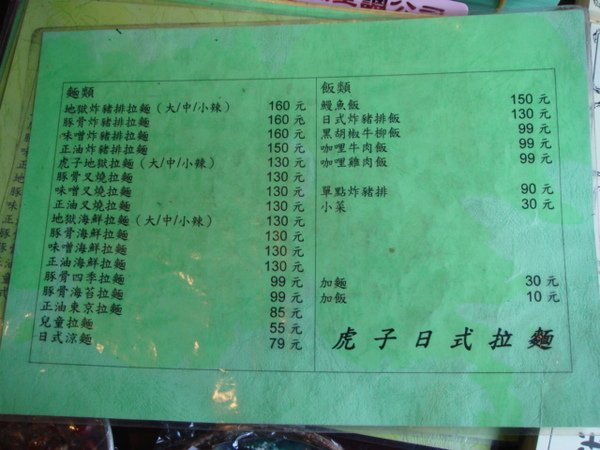 麵類
地獄炸豬排拉麵（大/中/小辣） 160 元
豚骨炸豬排拉麵 160 元
味噌炸豬排拉麵 160 元
正油炸豬排拉麵 150 元
虎子地獄拉麵（大/中/小辣） 130 元
豚骨叉燒拉麵 130 元
味噌叉燒拉麵 130 元
正油叉燒拉麵 130 元
地獄海鮮拉麵（大/中/小辣） 130 元
豚骨海鮮拉麵 130 元
味噌海鮮拉麵 130 元
正油海鮮拉麵 130 元
豚骨四季拉麵 99 元
豚骨海苔拉麵 99 元
正油東京拉麵 85 元
兒童拉麵 55 元
日式涼麵 79 元
飯類
鰻魚飯 150 元
日式炸豬排飯 130 元
黑胡椒牛柳飯 99 元
咖哩牛肉飯 99 元
咖哩雞肉飯 99 元
單點炸豬排 90 元
小菜 30 元
加麵 30 元
加飯 10 元
虎子日式拉麵